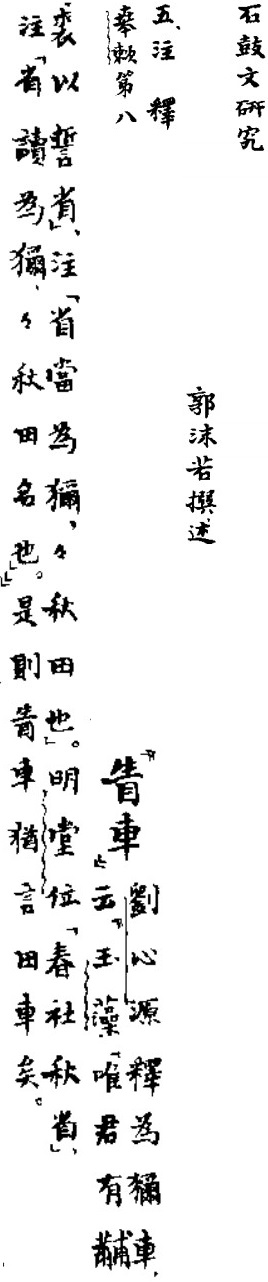 石鼓文研究
郭沫若撰述
五、注釋
奉敕第八
『眚車』
劉心源釋為獮車,
云『玉藻「唯君有黼
裘以誓省」、注「省當為獮、々秋田也」。明堂位「春社秋省」、
注「省讀為獮、々秋田名也」』。是則眚車猶言田車矣。